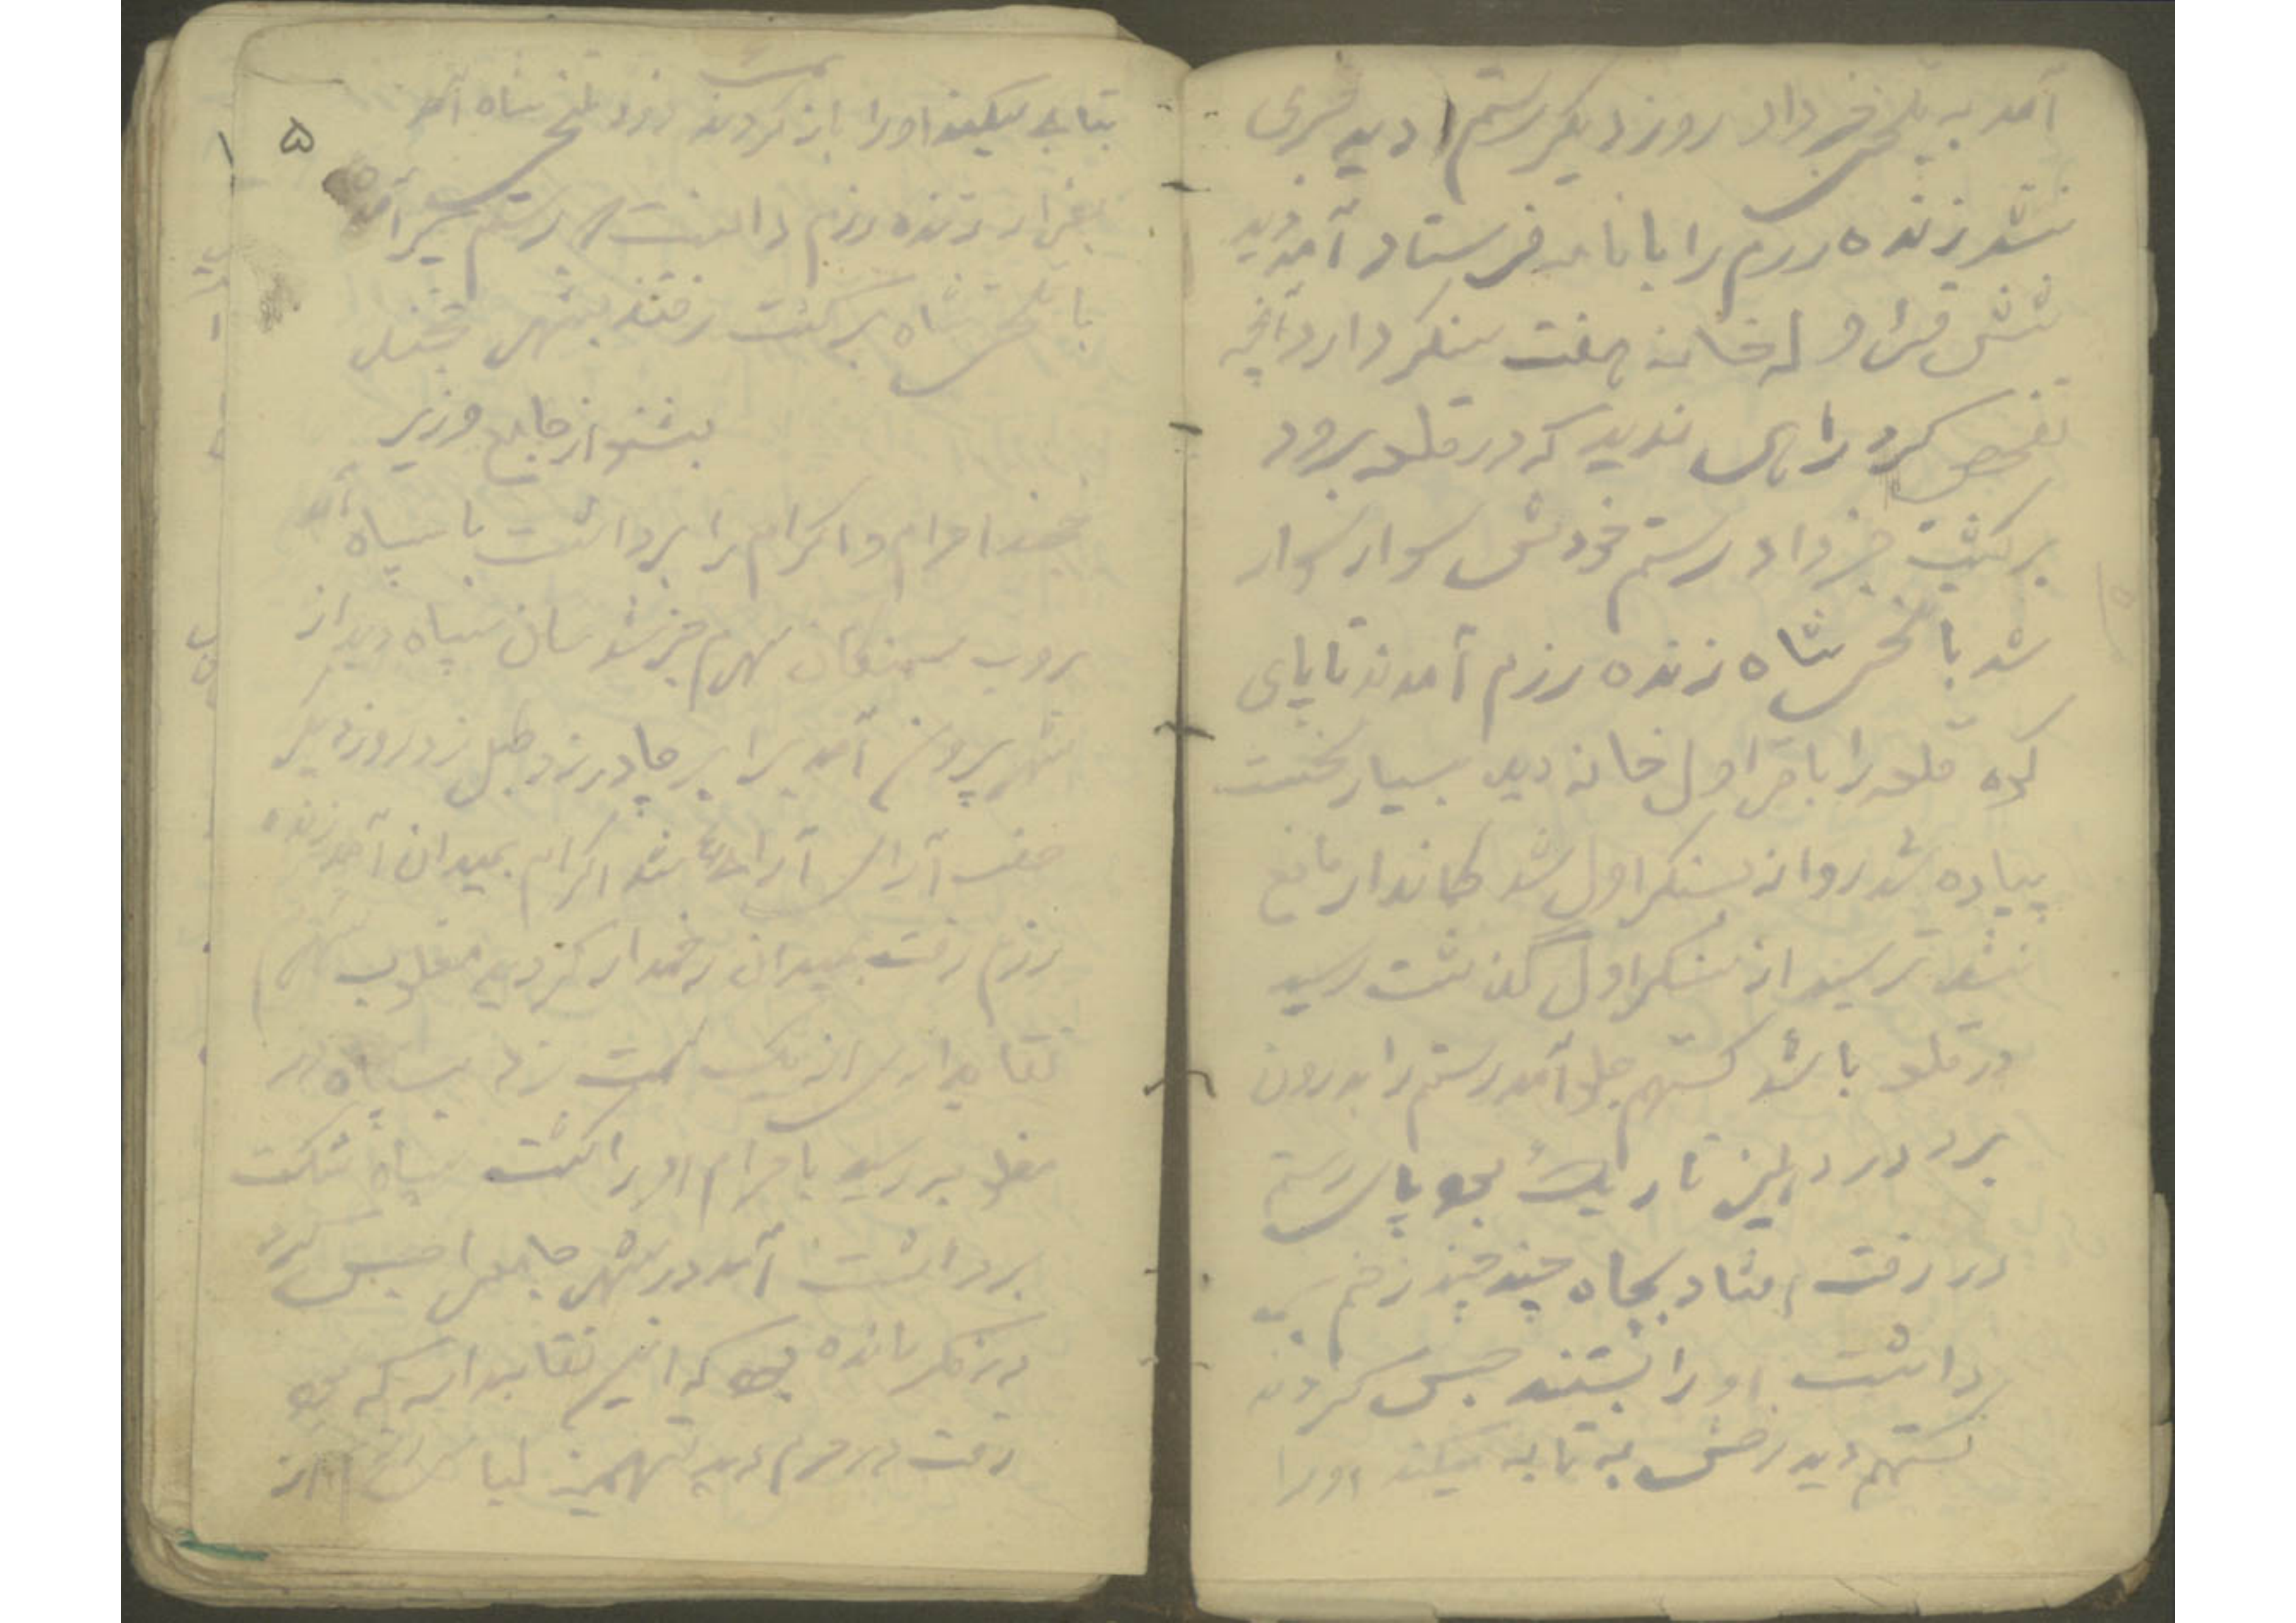 آمد به تلخس خبر داد روز دیگر رستم دید خبری
نشد زنده رزم را با نامه فرستاد آمد دید
شش قراولخانه هفت سنگر دارد آنچه
تفحص کرد راهی ندید که در قلعه برود
برگشت خبر داد رستم خودش سوار سوار
شد با شاه زنده رزم آمدند تا پای
کوه قلعه را با قراول خانه دید بسیار سخت
پیاده شد روانه سنگر اول شد کماندار مانع
نشد ترسید از سنگر اول گذشت رسید
در قلعه باشد گستهم جلو آمد رستم را بدرون
برد در دهلیز تاریک بود پای رستم
در رفت افتاد بچاه چند چند زخم
برداشت او را بستند حبس کردند
گستهم دید رخش بیتابی میکند او را
بیتابی میکند او را باز کردند نزد شاه آمد
زنده رزم دانست رستم گیر آمد
با شاه برگشت رفتند بشهر
بشنو از جامع وزیر
احرام و اکرام را برداشت با سپاه آمد
بروب سمنگان سهرم خبر شد سان سپاه دید از
شهر بیرون آمد برابر چادر زد طبل زد روز دیگر
صف آرای آراسته شد اکرام بمیدان آمد زنده
رزم رفت بمیدان زخمدار گردید مغلوبه
نقابداری از یک سمت زد بسپاه در
مغلوبه رسید با حرام او را کشت سپاه شکست
برداشت آمد در شهر جامع را حبس کرد
در فکر مانده بود که این نقابدار که بود
رفت در حرم دید تهمینه لباس از